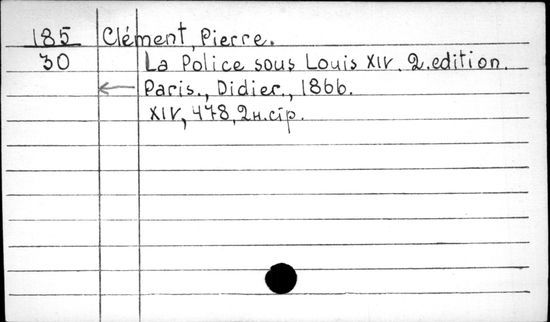 185 Clément, Pierre.
30 La Police sous Louis XIV. 2.edition.
Paris., Didier., 1866.
XIV, 478, 2н.стр.